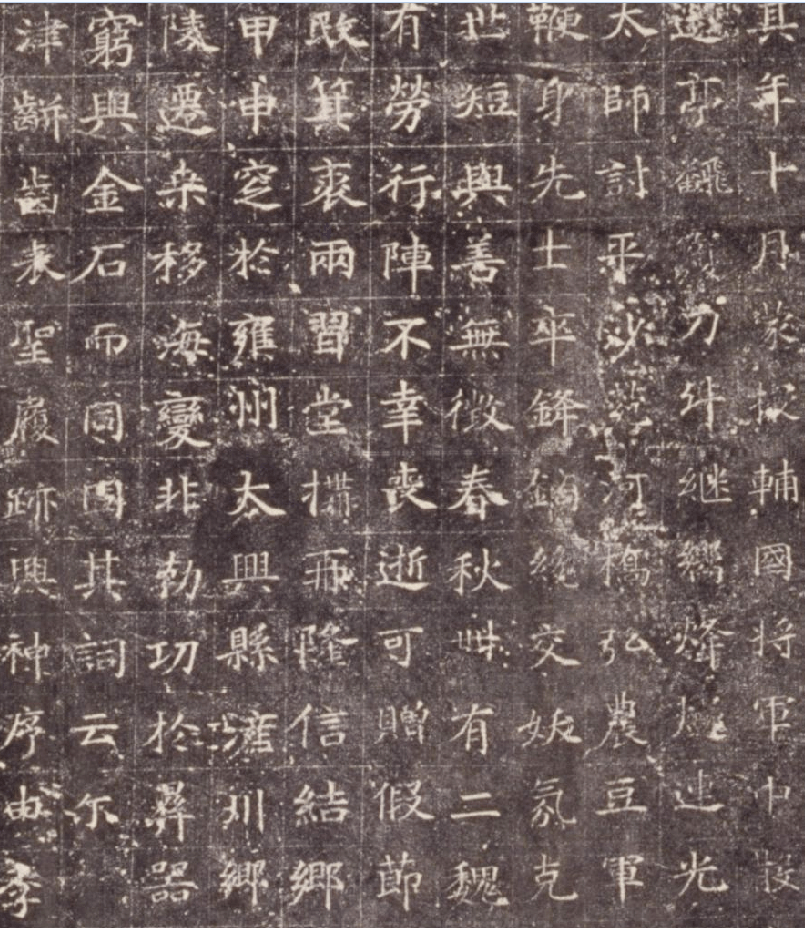 其年十月蒙授輔國將軍中
邊亭飜刀斗继響烽燧連光
太師討平沙苑河橋弘農豆軍
鞭身先士卒鋒鏑纔交妖氛克
世短與善無徵春秋卌有二魏
有勞行陣不幸喪逝可贈假節
敗箕裘兩習堂構再隆信結鄉
甲申窆於雍州太興縣滻川鄉
陵遷桒移海變非勒功於彝器
窮與金石而同固其詞云尔
津齗齒表聖履跡興神序由孝